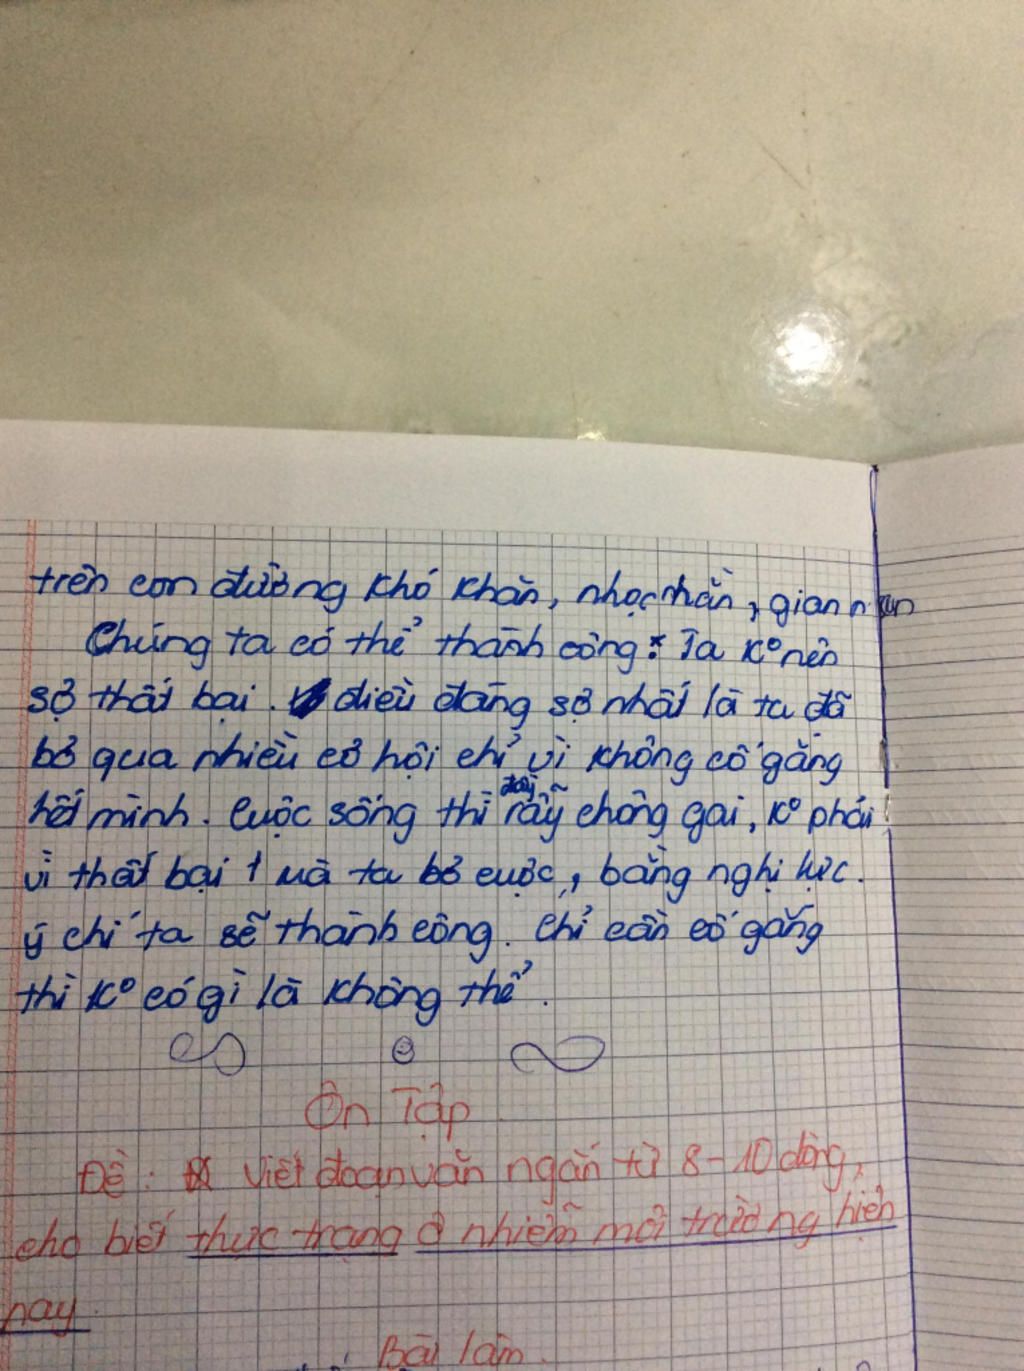 trên con đường khó khăn, nhọc nhằn, gian nan
Chúng ta có thể thành công. Ta k° nên
sợ thất bại. điều đáng sợ nhất là ta đã
bỏ qua nhiều cơ hội chỉ vì không cố gắng
hết mình. Cuộc sống thì đầy rẫy chông gai, k° phải
vì thất bại 1 mà ta bỏ cuộc, bằng nghị lực.
ý chí ta sẽ thành công. Chỉ cần cố gắng
thì k° có gì là không thể.
Ôn Tập
Đề: Viết đoạn văn ngắn từ 8-10 dòng,
cho biết thực trạng ô nhiễm môi trường hiện
nay.
Bài làm.